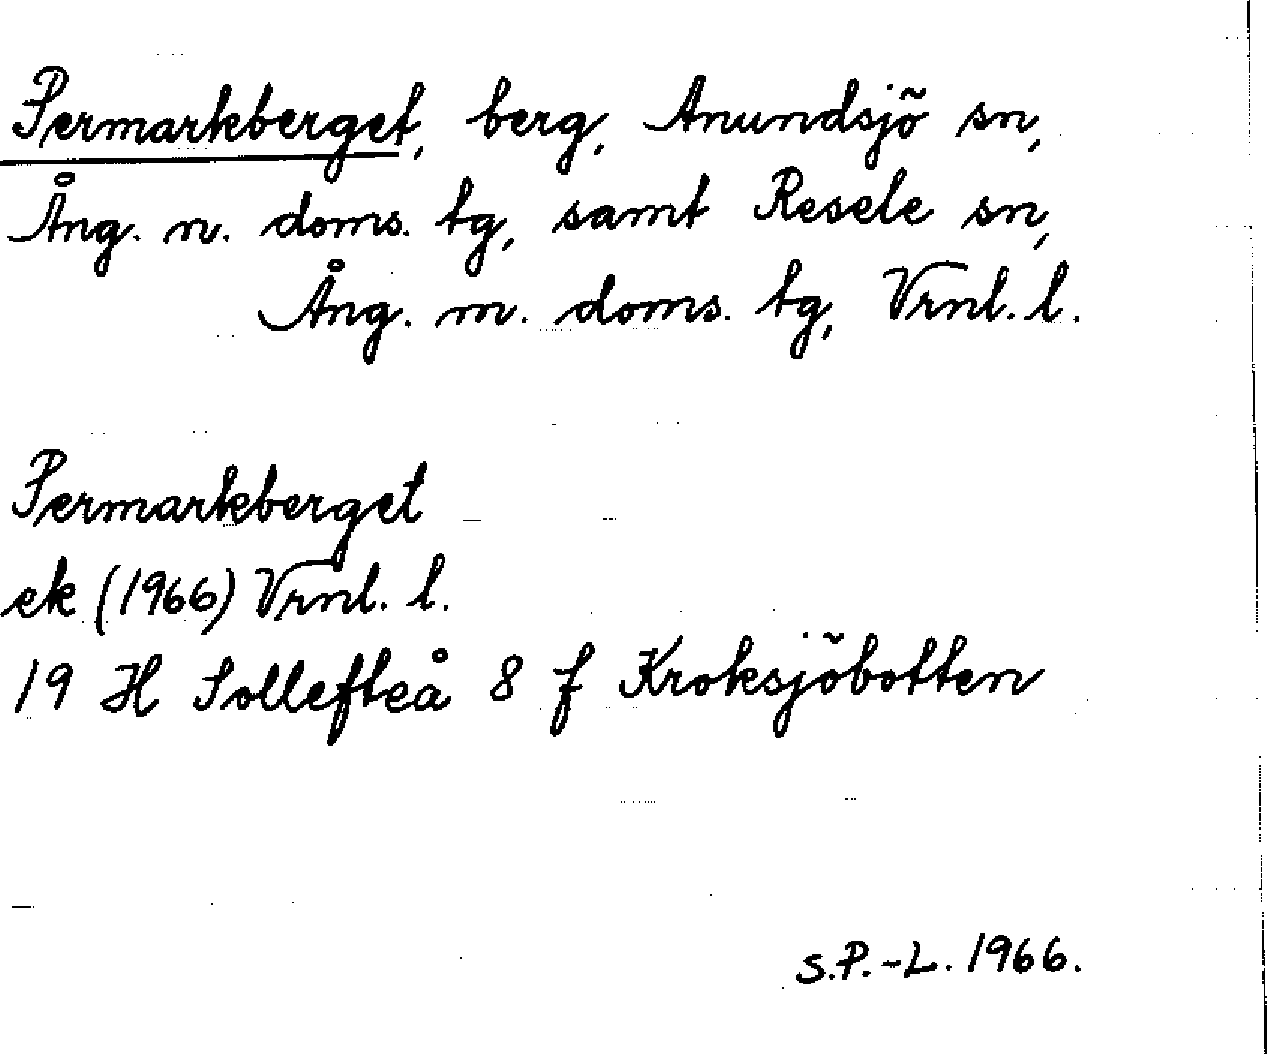 Permarkberget, berg, Anundsjö sn,
Ång. n. doms. tg, samt Resele sn,
Ång. m. doms. tg, Vrnl. l.
Permarkberget
ek (1966) Vrnl. l.
19 H Sollefteå 8 f Kroksjöbotten
S.P.-L. 1966.